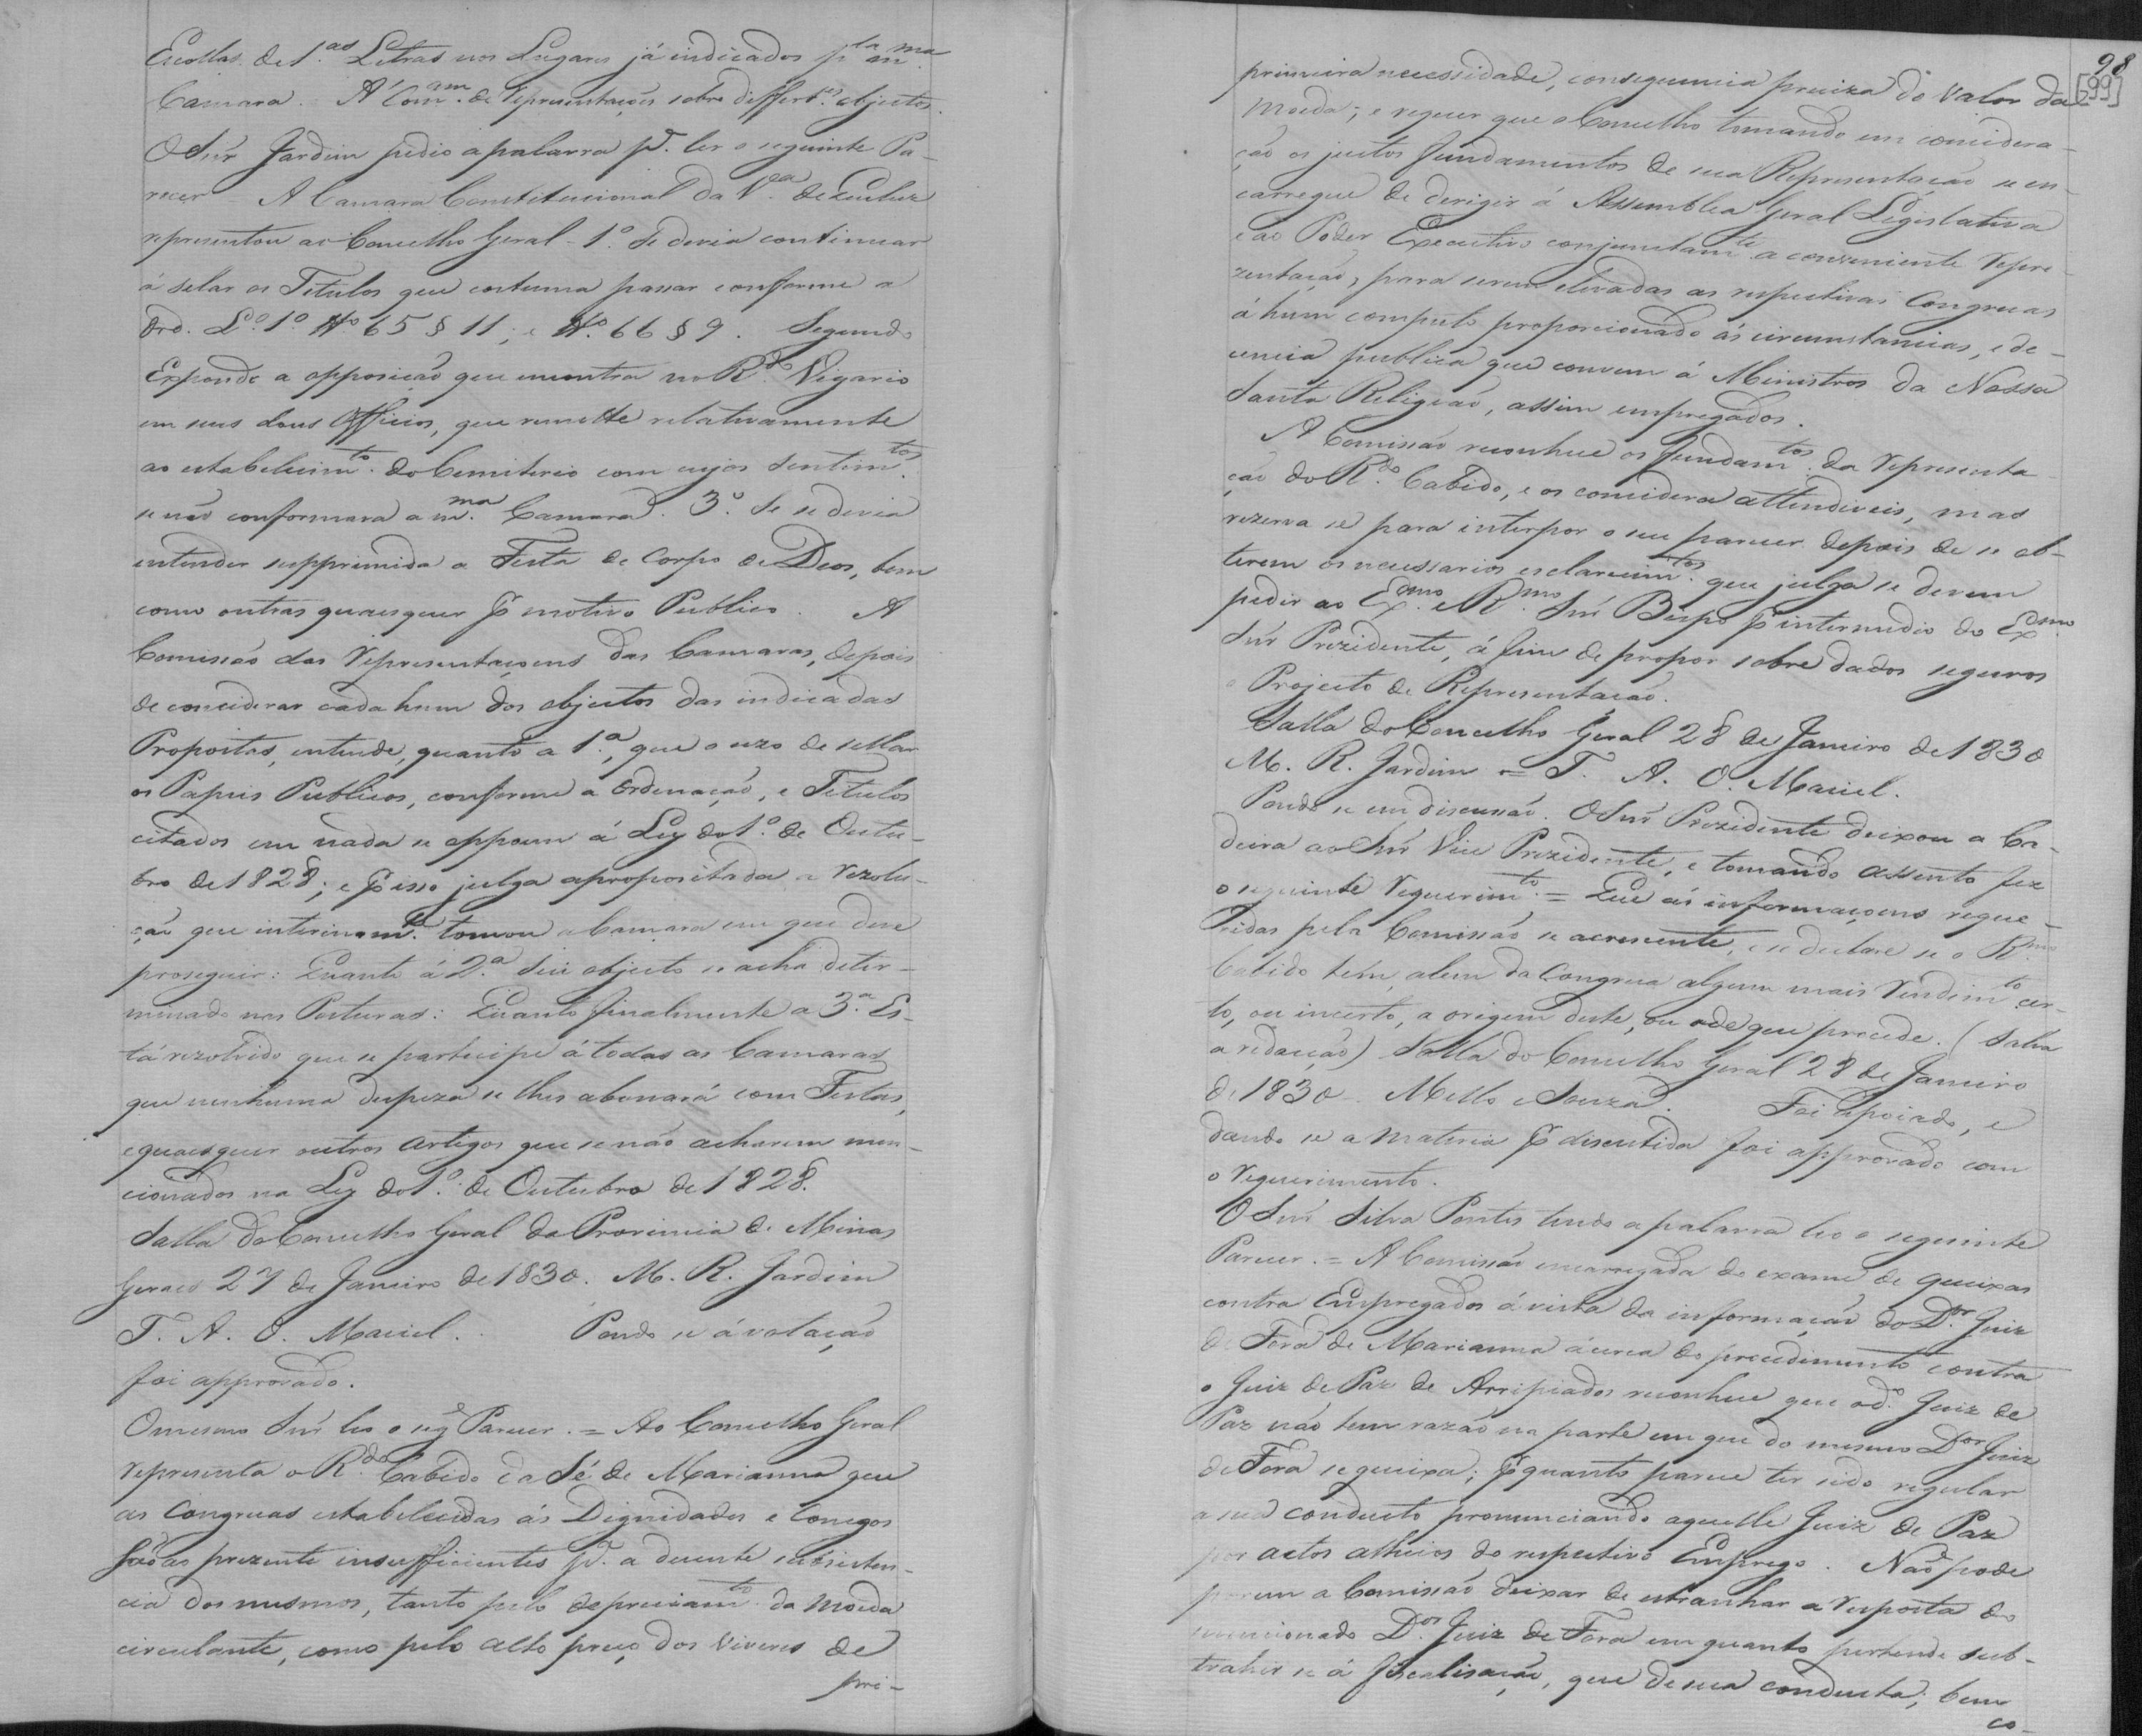 Escollas de 1.as Letras nos Lugares já indicados p.la m.ma
Camara. Á Com.am de Representações sobre differt.es objectos.
O Sñr Jardim pedio a palavra p.a ler o seguinte Pa-
recer - A Camara Constitucional da V.a de Queluz
representou ao Concelho Geral - 1.o Se devia continuar
á selar os Titulos que costuma passar conforme a
Ord. L.o 1.o tt.o 65 § 11; e tt.o 66 § 9. Segundo
Expondo a opposicão que encontra no R.do Vigario
em seus dous Officios, que remette relativamente
ao estabelecim.to do Cemiterio com cujos sentim.tos
se não conformara a m.ma Camara. 3.o Se se devia
entender supprimida a Festa de Corpo de Deos, bem
como outras quaesquer p motivo Publico. A
Comissão das Representaçoens das Camaras, depois
de considerar cada hum dos objectos das indicadas
Propostas, entende, quanto a 1.a, que o uzo de sellar
os Papeis Publicos, conforme a Ordenação, e Titulos
citados em nada se oppoem á Ley do 1.o de Outu-
bro de 1828; e p isso julga apropositada a rezolu-
ção que interinam.te tomou a Camara em que deve
proseguir: Quanto á 2.a Seu objecto se acha deter-
minado nas Posturas: Quanto finalmente a 3.a Es-
tá rezolvido que se participe á todas as Camaras
que nenhuma despeza se lhes abonará com Festas,
e quaesquer outros artigos que se não acharem men-
cionados na Ley do 1.o de Outubro de 1828.
Salla do Concelho Geral da Provincia de Minas
Geraes 27 de Janeiro de 1830. M. R. Jardim
T. A. O. Maciel. Pondo se á votação
foi approvado.
O mesmo Sñr leo o seg.e Parecer. = Ao Concelho Geral
representa o R.do Cabido da Sé de Marianna que
as Congruas estabelecidas ás Dignidades e Conegos
são as prezente insufficientes p.a a decente subsisten-
cia dos mesmos, tanto pelo depreciam.to da moeda
circulante, como pelo alto preço dos viveres de
pri-
98
[99]
primeira necessidade, consequencia preciza do valor da
moeda; e requer que o Concelho tomando em considera-
ção os justos fundamentos de sua Representacão se en-
carregue de derigir á Assemblea Geral Legislativa
e ao Poder Executivo conjunctam.te a conveniente repre-
zentação, para serem elevadas as respectivas Congruas
á hum computo proporcionado ás circumstancias, e de-
cencia publica que convem á Ministros da Nossa
Santa Religião, assim empregados.
A Comissão reconhece os fundam.tos da representa
ção do R.do Cabido, e os considera attendiveis, mas
rezerva se para interpor o seu parecer depois de se ob-
terem os necessarios esclarecim.tos que julga se devem
pedir ao Ex.mo e R.mo Sñr Bispo p intermedio do Ex.mo
Sñr Prezidente, á fim de propor sobre dados seguros
o Projecto de Representacão.
Salla do Concelho Geral 28 de Janeiro de 1830
M. R. Jardim = T. A. O. Maciel.
Pondo se em discussão. O Sñr Prezidente deixou a Ca-
deira ao Sñr Vice Prezidente, e tomando assento fez
o seguinte requerim.to = Que ás informaçoens reque-
ridas pela Comissão se acrescente, e se declare se o R.mo
Cabido tem, alem da Congrua algum mais rendim.to cer-
to, ou incerto, a origem deste, ou o de que procede. (Salva
a redacção) Salla do Concelho Geral 28 de Janeiro
de 1830 - Mello e Souza. Foi apoiado, e
dando se a materia p discutida foi approvado com
o requerimento.
O Sñr Silva Pontes tendo a palavra leo o seguinte
Parecer. = A Comissão encarregada do exame de queixas
contra Empregados á vista da informação do D.or Juiz
de Fora de Marianna ácerca do procedimento contra
o Juiz de Paz de Arripiados reconhece que o d.o Juiz de
Paz não tem razão na parte em que do mesmo D.or Juiz
de Fora se queixa; p quanto parece ter sido regular
a sua conducta pronunciando aquelle Juiz de Paz
por actos alheios do respectivo Emprego. Não pode
porem a Comissão deixar de estranhar a resposta do
mencionado D.or Juiz de Fora em quanto pertende sub-
trahir se á fiscalisação, que de sua conducta, bem
co-